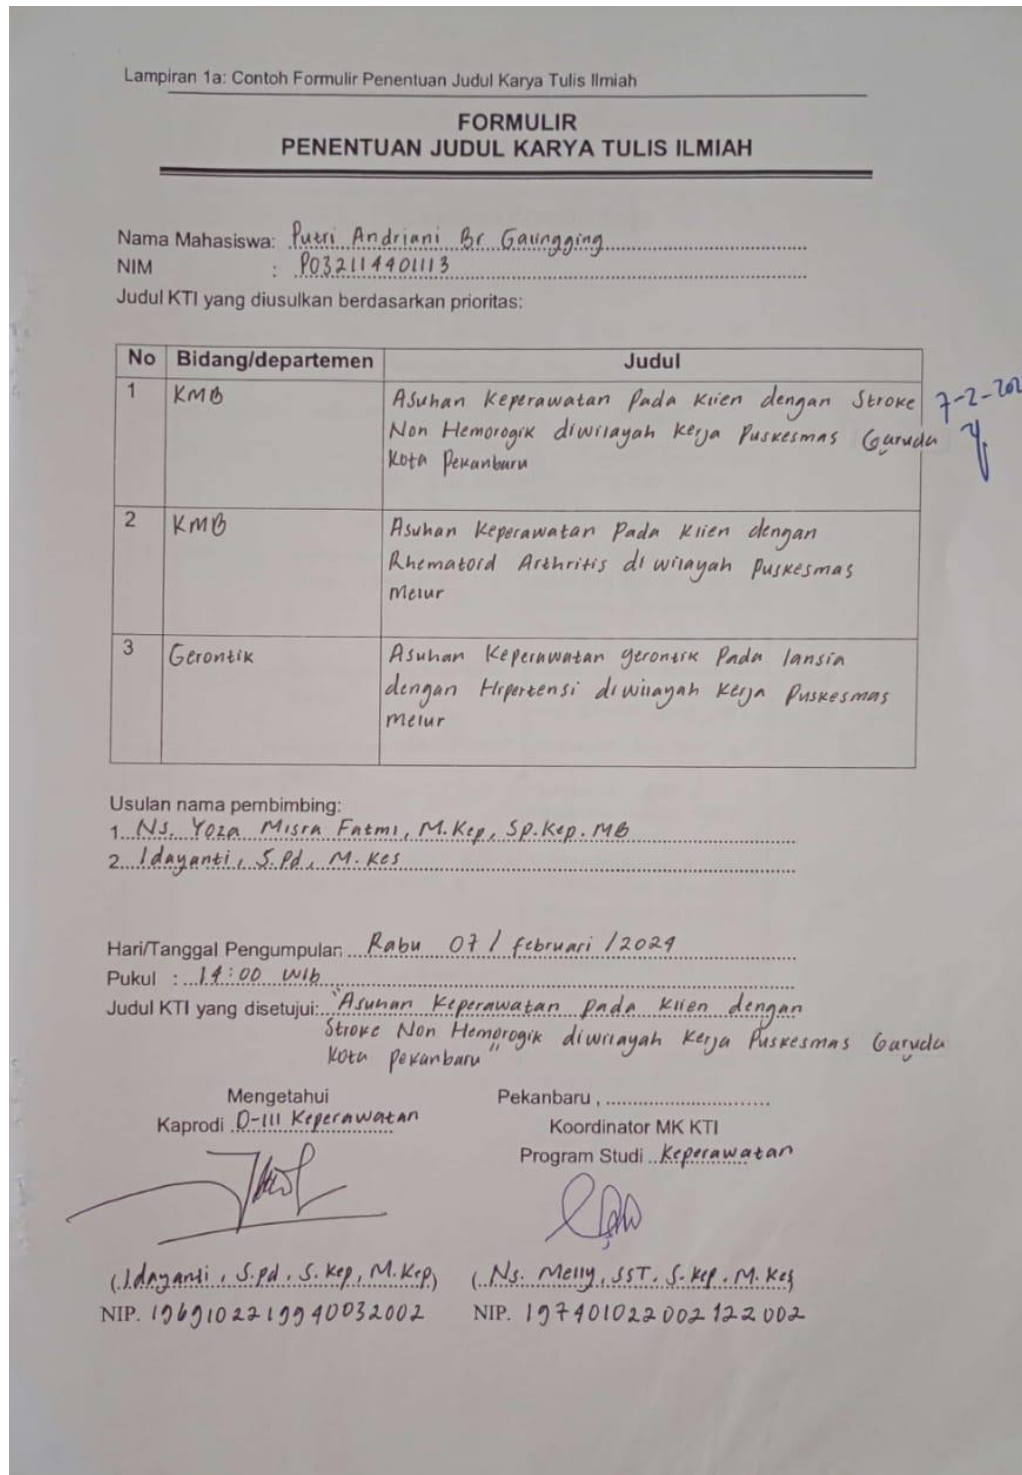 Lampiran 1a: Contoh Formulir Penentuan Judul Karya Tulis Ilmiah
FORMULIR
PENENTUAN JUDUL KARYA TULIS ILMIAH
Nama Mahasiswa: Putri Andriani Br Gaungging
NIM : P032114401113
Judul KTI yang diusulkan berdasarkan prioritas:
No Bidang/departemen Judul
1 KMB Asuhan Keperawatan Pada Klien dengan Stroke 7-2-202
Non Hemorogik diwilayah Kerja Puskesmas Garuda
Kota Pekanbaru
2 KMB Asuhan Keperawatan Pada Klien dengan
Rhematoid Arthritis di wilayah Puskesmas
Melur
3 Gerontik Asuhan Keperawatan gerontik Pada lansia
dengan Hipertensi diwilayah Kerja Puskesmas
Melur
Usulan nama pembimbing:
1. Ns. Yoza Misra Fatmi, M.Kep, Sp.Kep.MB
2. Idayanti, S.Pd, M.Kes
Hari/Tanggal Pengumpulan Rabu 07 / februari / 2024
Pukul : 14:00 Wib
Judul KTI yang disetujui: "Asuhan Keperawatan pada Klien dengan
Stroke Non Hemorogik diwilayah Kerja Puskesmas Garuda
Kota Pekanbaru"
Mengetahui
Kaprodi D-III Keperawatan
Pekanbaru , ............................
Koordinator MK KTI
Program Studi Keperawatan
(Idayanti, S.Pd, S.Kep, M.Kep)
NIP. 196910221994032002
(Ns. Melly, SST. S.Kep. M.Kes
NIP. 197401022002122002